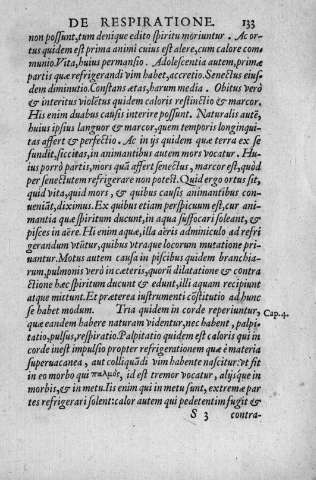 DE RESPIRATIONE. 133
non possunt, tum denique edito spiritu moriuntur . Ac or-
tus quidem est prima animi cuius est alere, cum calore com
munio. Vita, huius permansio . Adolescentia autem, primæ
partis quæ refrigerandi vim habet, accretio. Senectus eius-
dem diminutio. Constans ætas, harum media . Obitus verò
& interitus violētus quidem caloris restinctio & marcor.
His enim duabus causis interire possunt. Naturalis autē,
huius ipsius languor & marcor, quem temporis longinqui-
tas affert & perfectio. Ac in ijs quidem quæ terra ex se
fundit, siccitas, in animantibus autem mors vocatur . Hu-
ius porrò partis, mors quā affert senectus, marcor est, quòd
per senectutem refrigerare non potest. Quid ergo ortus sit,
quid vita, quid mors , & quibus causis animantibus con-
ueniāt, diximus. Ex quibus etiam perspicuum est, cur ani-
mantia quæ spiritum ducunt, in aqua suffocari soleant, &
pisces in aëre. His enim aquæ, illa aëris adminiculo ad refri
gerandum vtūtur, quibus vtraque locorum mutatione pri-
uantur. Motus autem causa in piscibus quidem branchia-
rum, pulmonis verò in cæteris, quorū dilatatione & contra
ctione hæc spiritum ducunt & edunt, illi aquam recipiunt
atque mittunt. Et præterea iustrumenti cōstitutio ad hunc
se habet modum. Tria quidem in corde reperiuntur, Cap. 4.
quæ eandem habere naturam videntur, nec habent, palpi-
tatio, pulsus, respiratio. Palpitatio quidem est caloris qui in
corde inest impulsio propter refrigerationem quæ è materia
superuacanea , aut colliquādi vim habente nascitur: vt sit
in eo morbo qui παλμός, id est tremor vocatur, alijsque in
morbis, & in metu. Iis enim qui in metu sunt, extremæ par
tes refrigerari solent: calor autem qui pedetentim fugit &
S 3 contra-